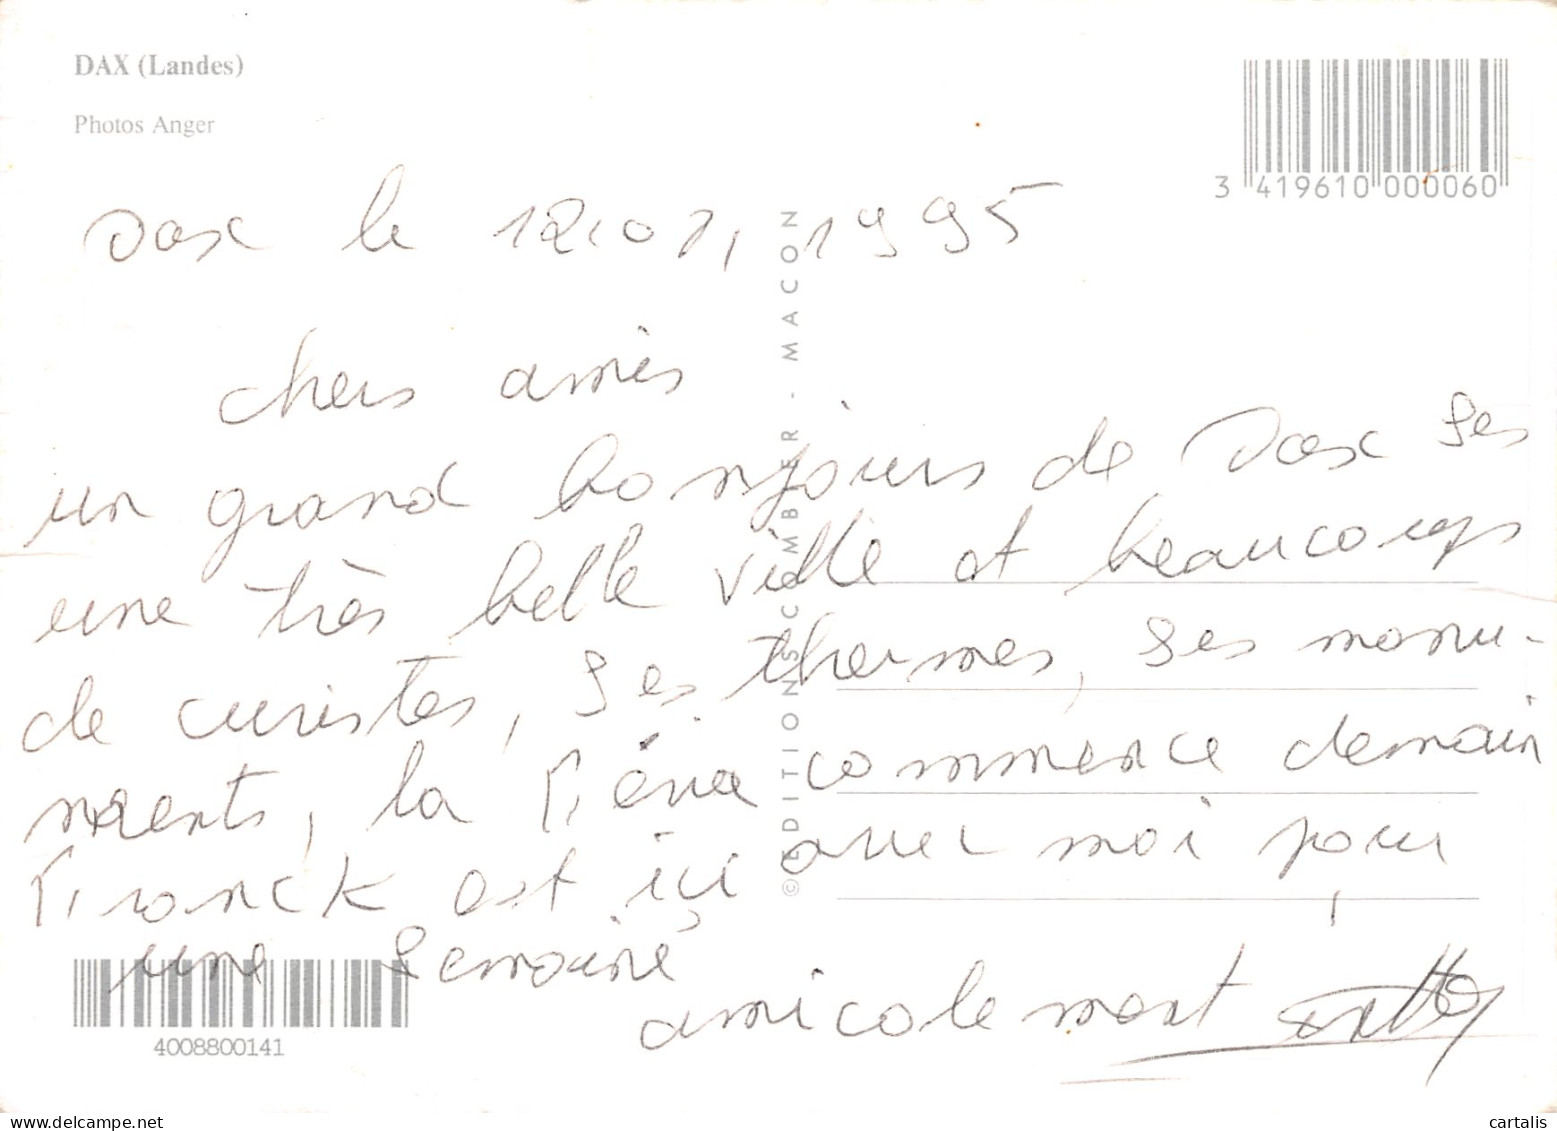 DAX (Landes)
Photos Anger
3 419610 000060
Dax le 12.07.1995
chers amis
un grand bonjours de Dax ses
une très belle ville et beaucoups
de curistes, ses thermes, ses monu-
ments, la Féria commence demain
Franck est ici avec moi pour
une semaine
amicalement
© EDITIONS COMBIER - MACON
4008800141
cartalis